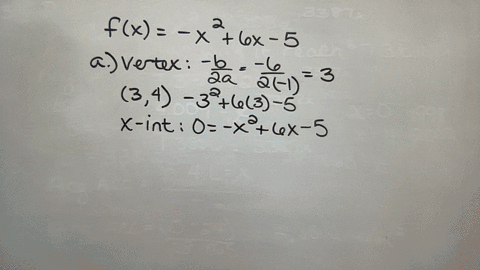 f(x) = -x² + 6x - 5
a.) Vertex: -b/2a = -6/2(-1) = 3
(3,4) -3² + 6(3) - 5
x-int: 0 = -x² + 6x - 5